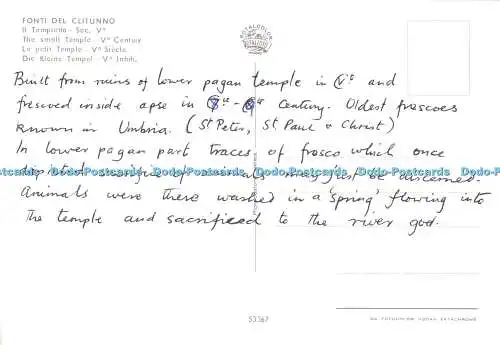 FONTI DEL CLITUNNO
Il Tempietto - Sec. V°
The small Temple - V° Century
Le petit Temple - V° Siècle
Die Kleine Tempel - V° Jahrh.
Built from ruins of lower pagan temple in C V° and
frescoed inside apse in Century. Oldest frescoes
known in Umbria. (St. Peter, St. Paul & Christ)
In lower pagan part traces of fresco which once
Dodo-Postcards Dodo-Postcards Dodo-Postcards Dodo-Postcards Dodo-Postcards Dodo-Postcards
depicted sacrifice of animals may just be discerned.
Animals were there washed in a 'spring' flowing into
the temple and sacrificed to the river god.
53367
DA FOTOCOLOR KODAK EKTACHROME